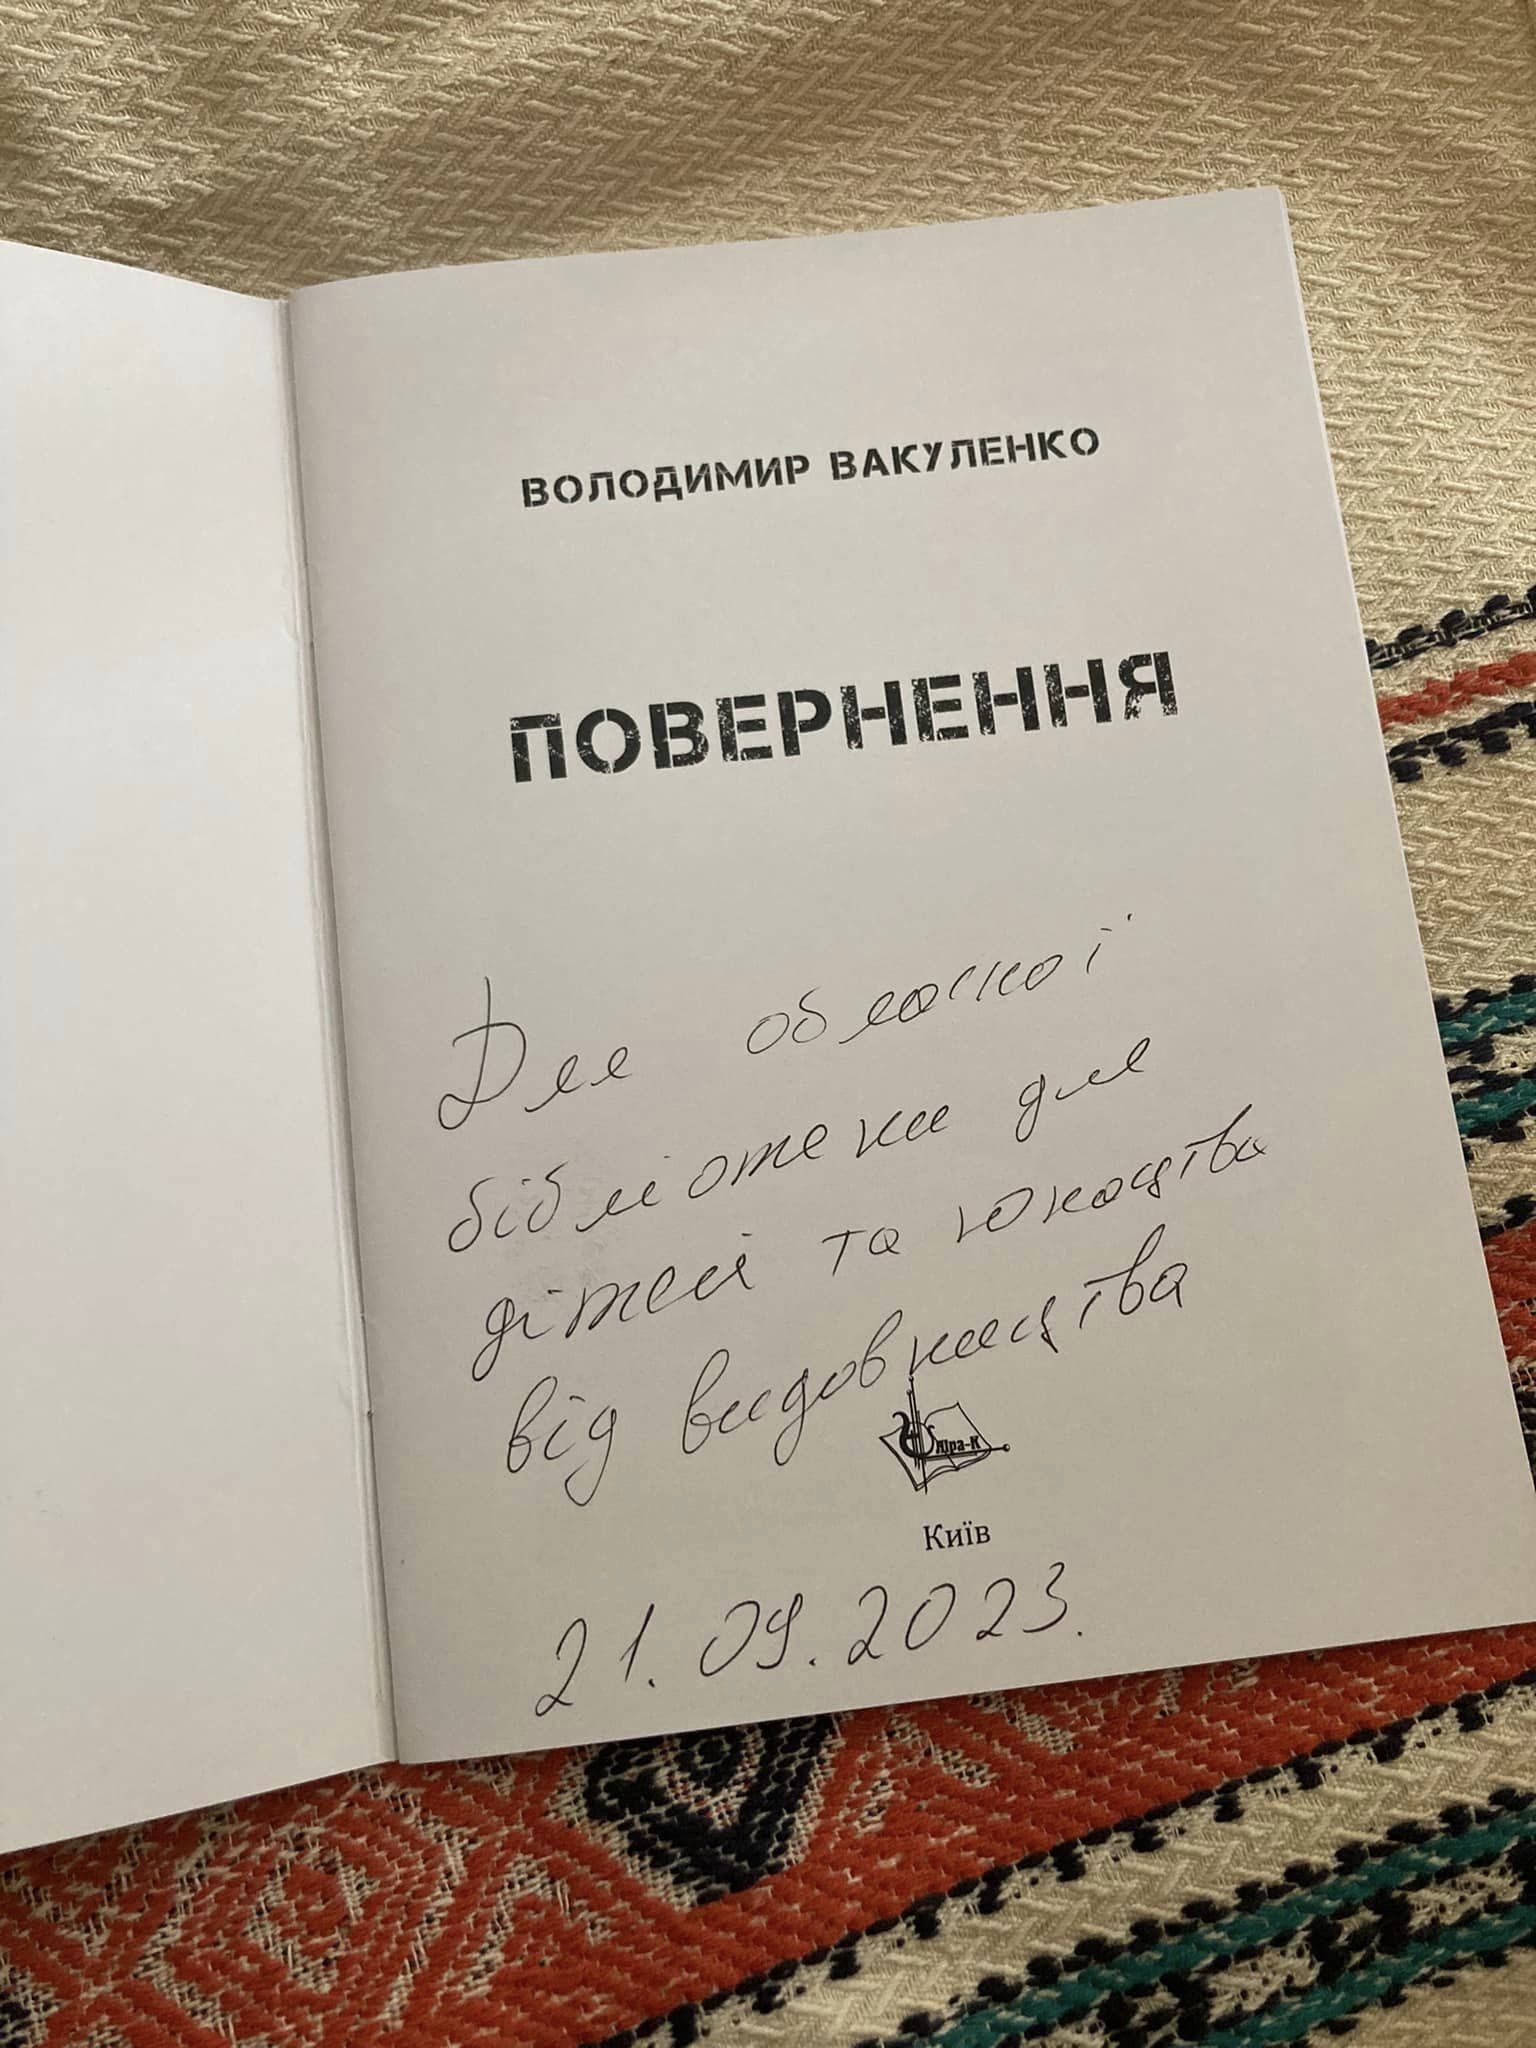 ВОЛОДИМИР ВАКУЛЕНКО
ПОВЕРНЕННЯ
Для обласної
бібліотеки для
дітей та юнацтва
від видавництва
Ліра-К
Київ
21.09.2023.